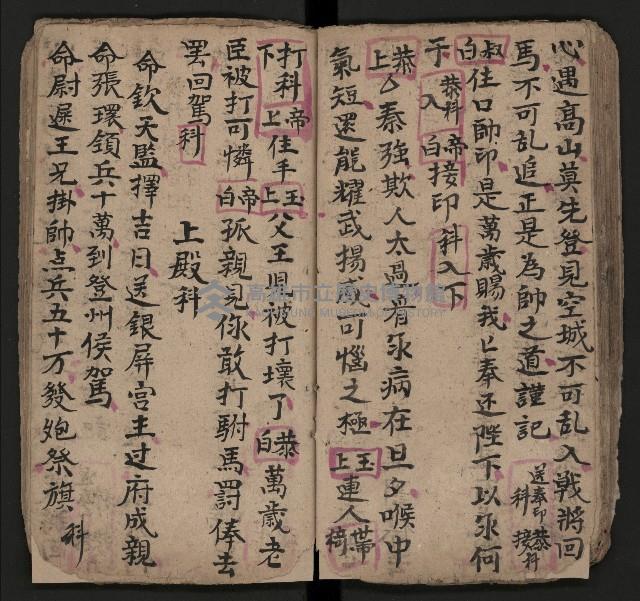 心遇高山莫先登見空城不可乱入戰將回
馬不可乱追正是為帥之道謹記 送奉印恭科接科
叔白住口帥印是萬歲賜我奉还陛下以永何
于 恭科入 帝白接印 科入下
恭上 秦強欺人太 病在旦夕喉中
氣短還能耀武揚威可惱之極 玉上連人 帝
打科下 帝上住手 玉上父王 被打壞了 恭白萬歲老
臣被打可憐 帝白孤親見你敢打駙馬罰俸去
罢回駕科 上殿科
命欽天監擇吉日送銀屏宫主过府成親
命張環領兵十萬到登州侯駕
命尉遲王兄掛帥点兵五十万發炮祭旗 科
高雄市立歷史博物館
KAOHSIUNG MUSEUM OF HISTORY